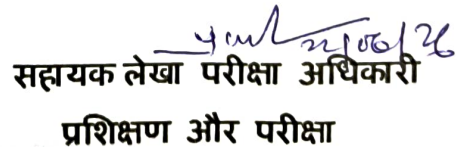 22/06/26
सहायक लेखा परीक्षा अधिकारी
प्रशिक्षण और परीक्षा